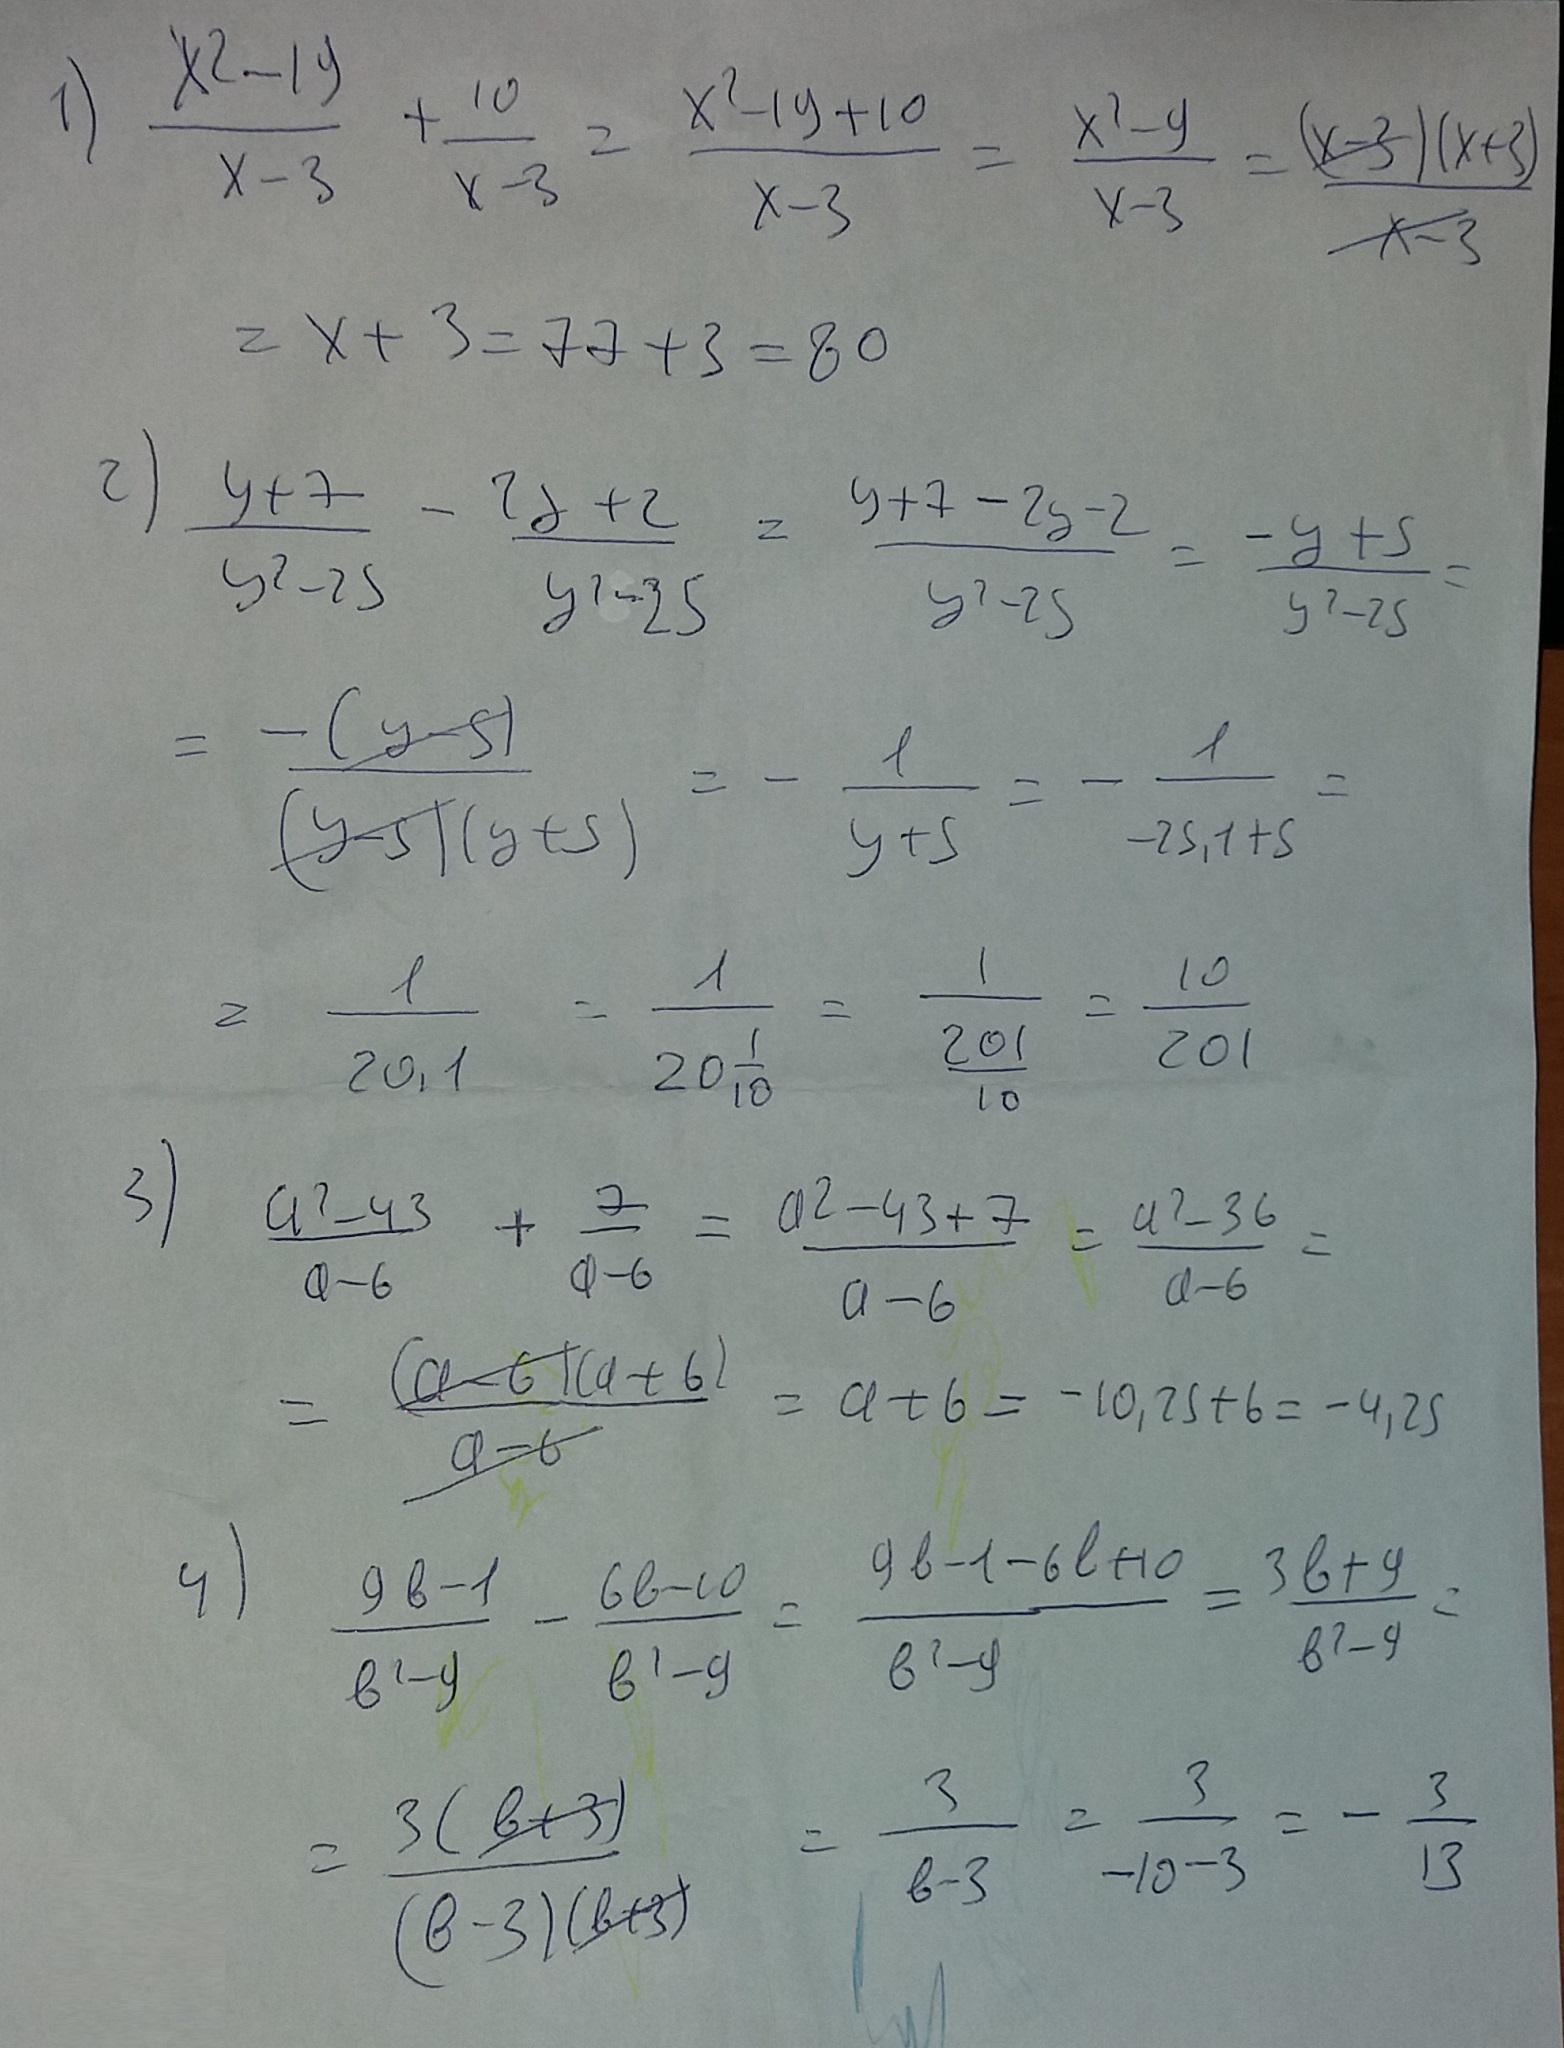 1) (x²-19)/(x-3) + 10/(x-3) = (x²-19+10)/(x-3) = (x²-9)/(x-3) = ((x-3)(x+3))/(x-3)
= x+3 = 77+3 = 80
2) (y+7)/(y²-25) - (2y+2)/(y²-25) = (y+7-2y-2)/(y²-25) = (-y+5)/(y²-25) =
= (-(y-5))/((y-5)(y+5)) = - 1/(y+5) = - 1/(-25,1+5) =
= 1/(20,1) = 1/(20 1/10) = 1/(201/10) = 10/201
3) (a²-43)/(a-6) + 7/(a-6) = (a²-43+7)/(a-6) = (a²-36)/(a-6) =
= ((a-6)(a+6))/(a-6) = a+6 = -10,25+6 = -4,25
4) (9b-1)/(b²-9) - (6b-10)/(b²-9) = (9b-1-6b+10)/(b²-9) = (3b+9)/(b²-9) =
= (3(b+3))/((b-3)(b+3)) = 3/(b-3) = 3/(-10-3) = - 3/13